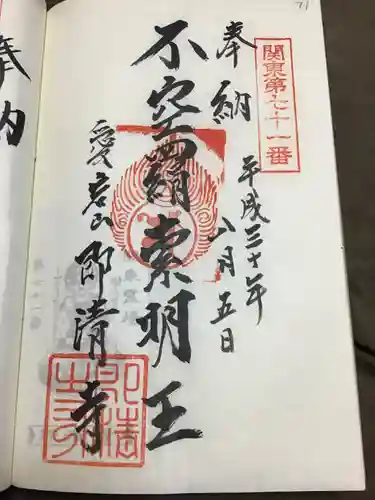 関東第七十一番
奉納
平成三十年
八月五日
不空羂索明王
愛宕山 即清寺
奉納